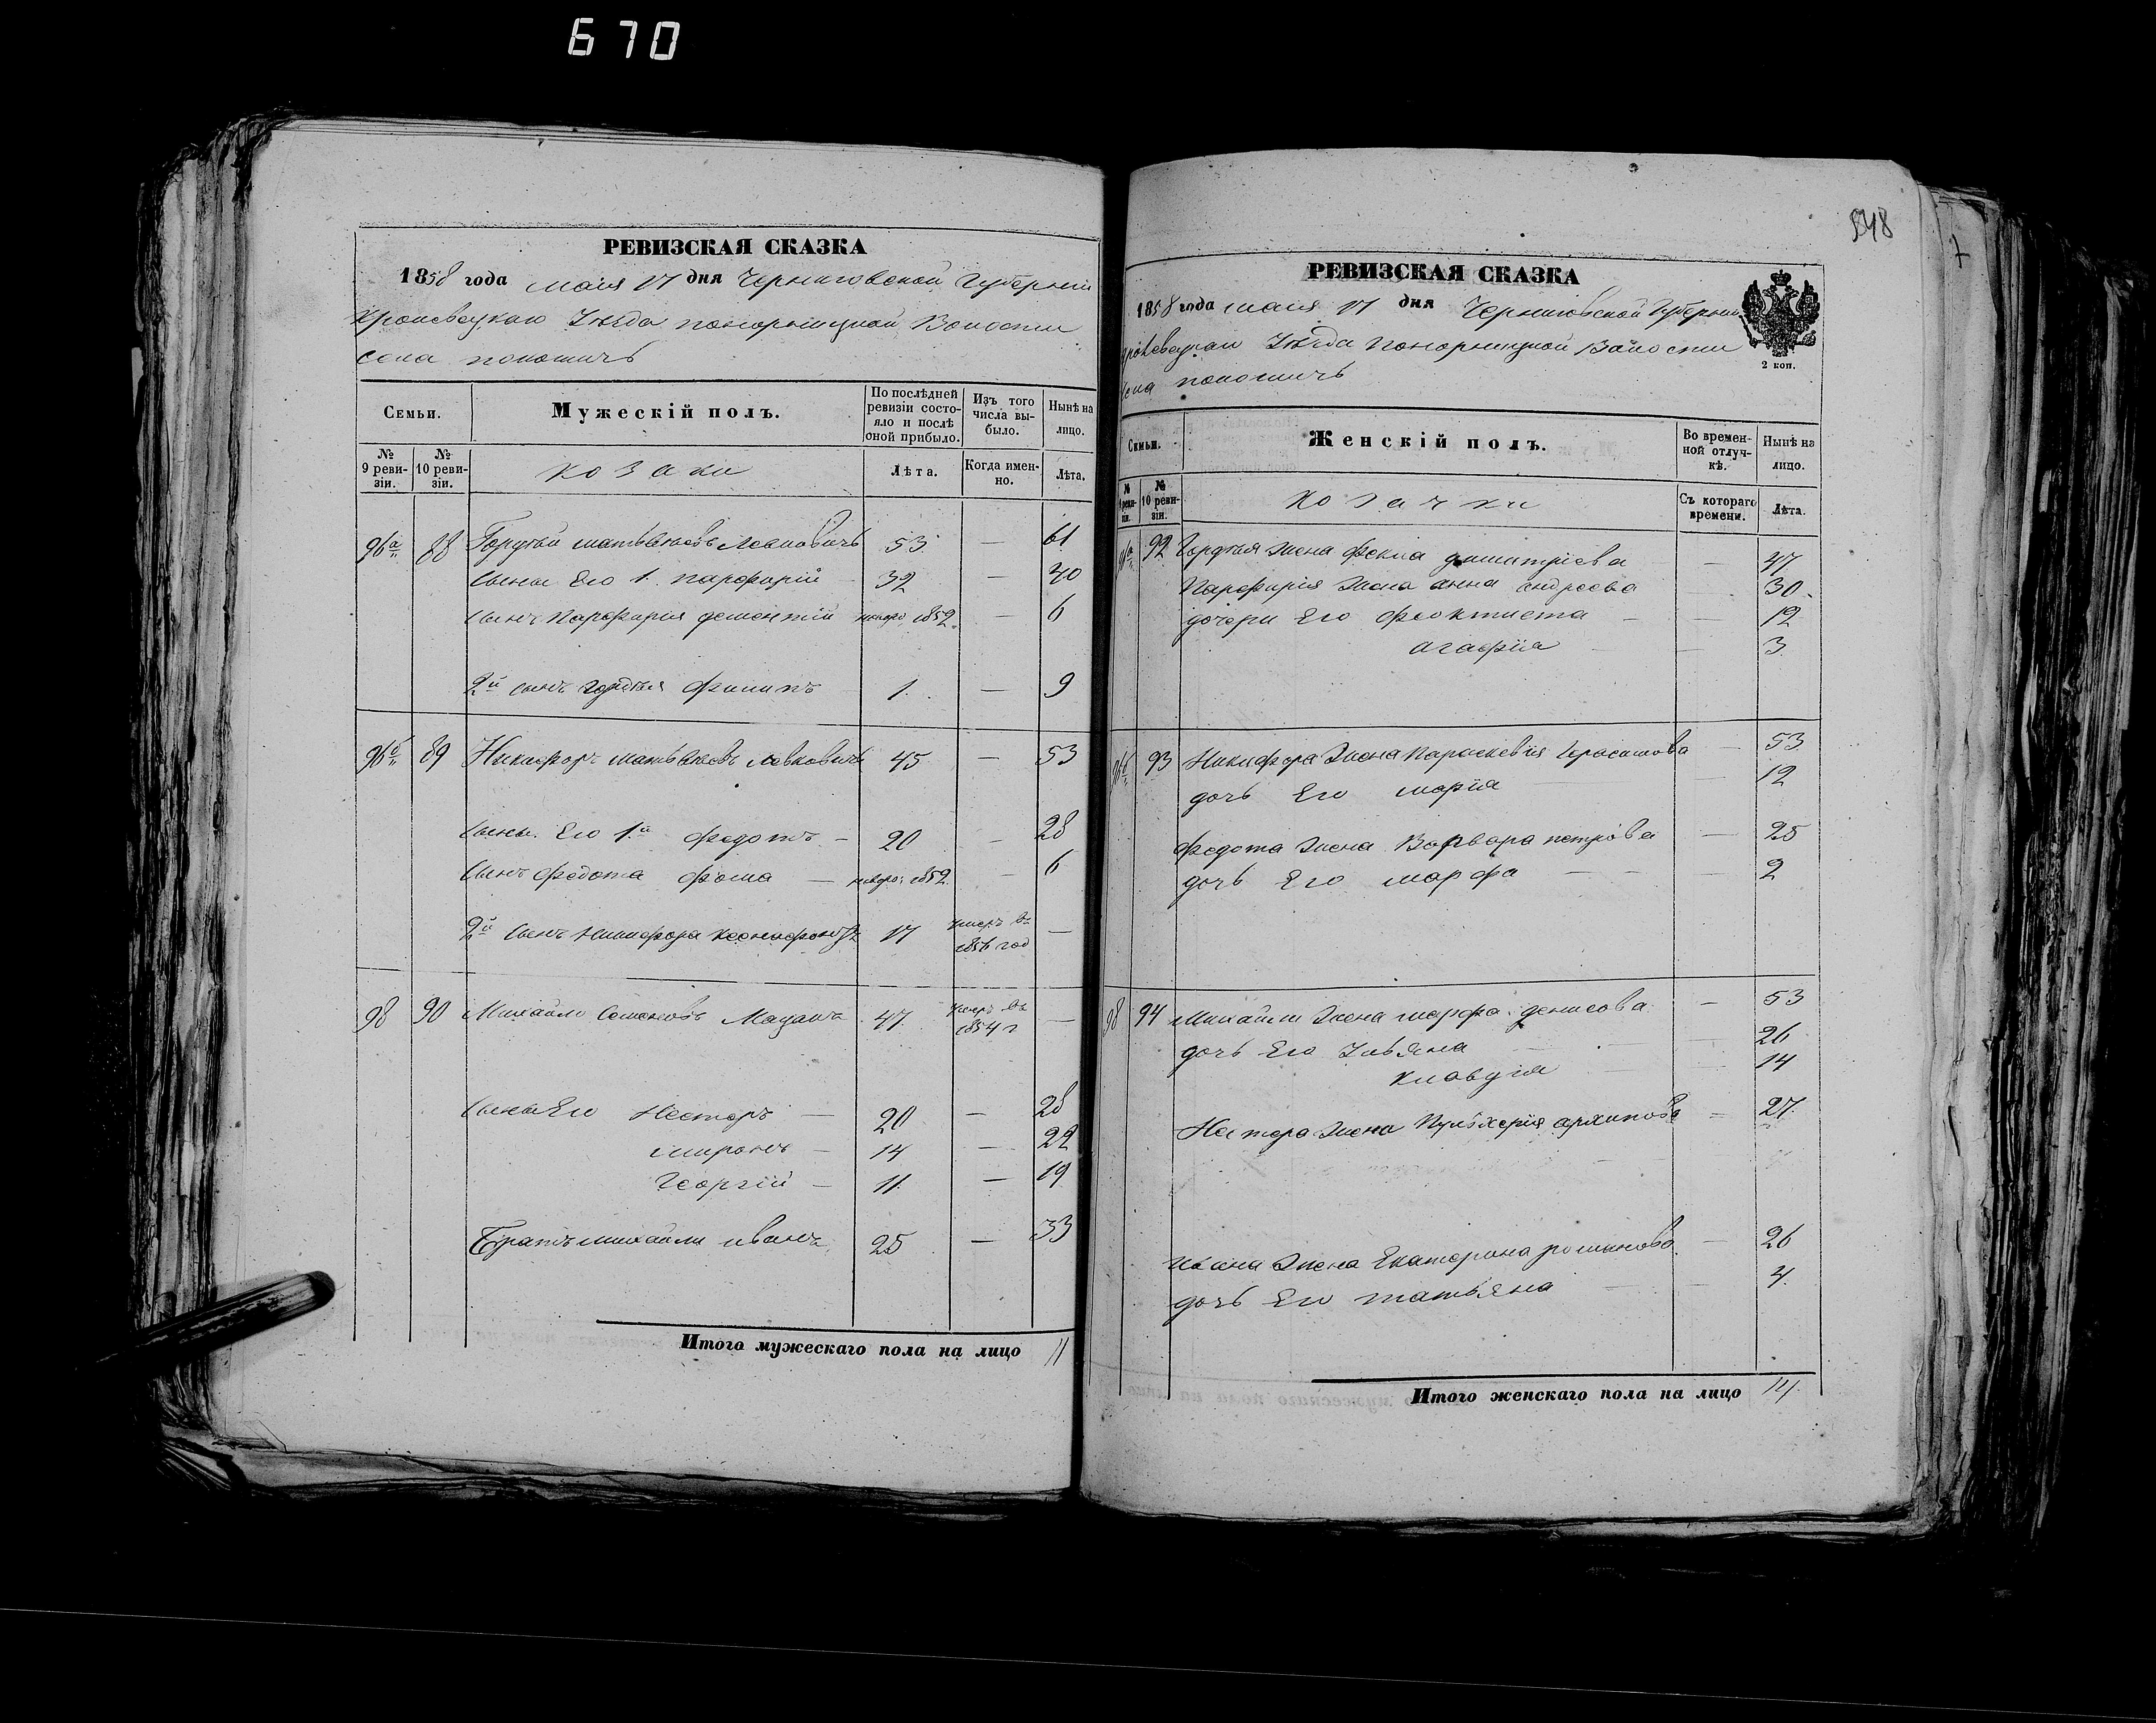 670
РЕВИЗСКАЯ СКАЗКА
1858 года маия 17 дня Черниговской Губерніи
Кролевецкаго Уѣзда понорницкой Волости
села
Семьи.
Мужескій полъ.
По послѣдней ревизіи состояло и послѣ оной прибыло.
Изъ того числа выбыло.
Нынѣ на лицо.
№ 9 ревизіи.
№ 10 ревизіи.
козаки
Лѣта.
Когда именно.
Лѣта.
96а 88 Гордѣй матвѣевъ 53 — 61
сыны Его 1. парфирій 32 — 40
сынъ Парфирія дементій 1852 — 6
2й сынъ гордѣя филипъ 1. — 9
96б 89 Никифоръ матвѣевъ левковичъ 45 — 53
сыны Его 1й федотъ — 20 — 28
сынъ федота фома — 1852 — 6
2й сынъ никифора ксенофонтъ 17 умеръ въ 1856 год —
98 90 Михайло Семеновъ 47 умеръ въ 1854 г —
сыны Его Несторъ — 20 — 28
миронъ — 14 — 22
Георгій — 11. — 19
Братъ михайлы иванъ 25 — 33
Итого мужескаго пола на лицо 11
548
РЕВИЗСКАЯ СКАЗКА
1858 года маия 17 дня Черниговской Губерніи
Кролевецкаго Уѣзда Понорницкой Волости
села
2 коп.
Семьи.
Женскій полъ.
Во временной отлучкѣ.
Нынѣ на лицо.
№ 9 ревизіи.
№ 10 ревизіи.
козачки
Съ котораго времени.
Лѣта.
96а 92 Гордѣя жена фекла димитріева — 47
Парфирія жена анна андреева 30.
дочери Его феоктиста — — 12
агафія — 3
96б 93 Никифора жена Параскевія Герасимова — 53
дочь Его марія 12
федота жена Варвара петрова — 25
дочь Его марфа — 2
98 94 Михайлы жена марфа денисова — 53
дочь Его Ульяна 26
клавдія 14
Нестора жена Пульхерія архипова — 27.
Ивана жена Екатерина романова — 26
дочь Его татьяна 4.
Итого женскаго пола на лицо 14.